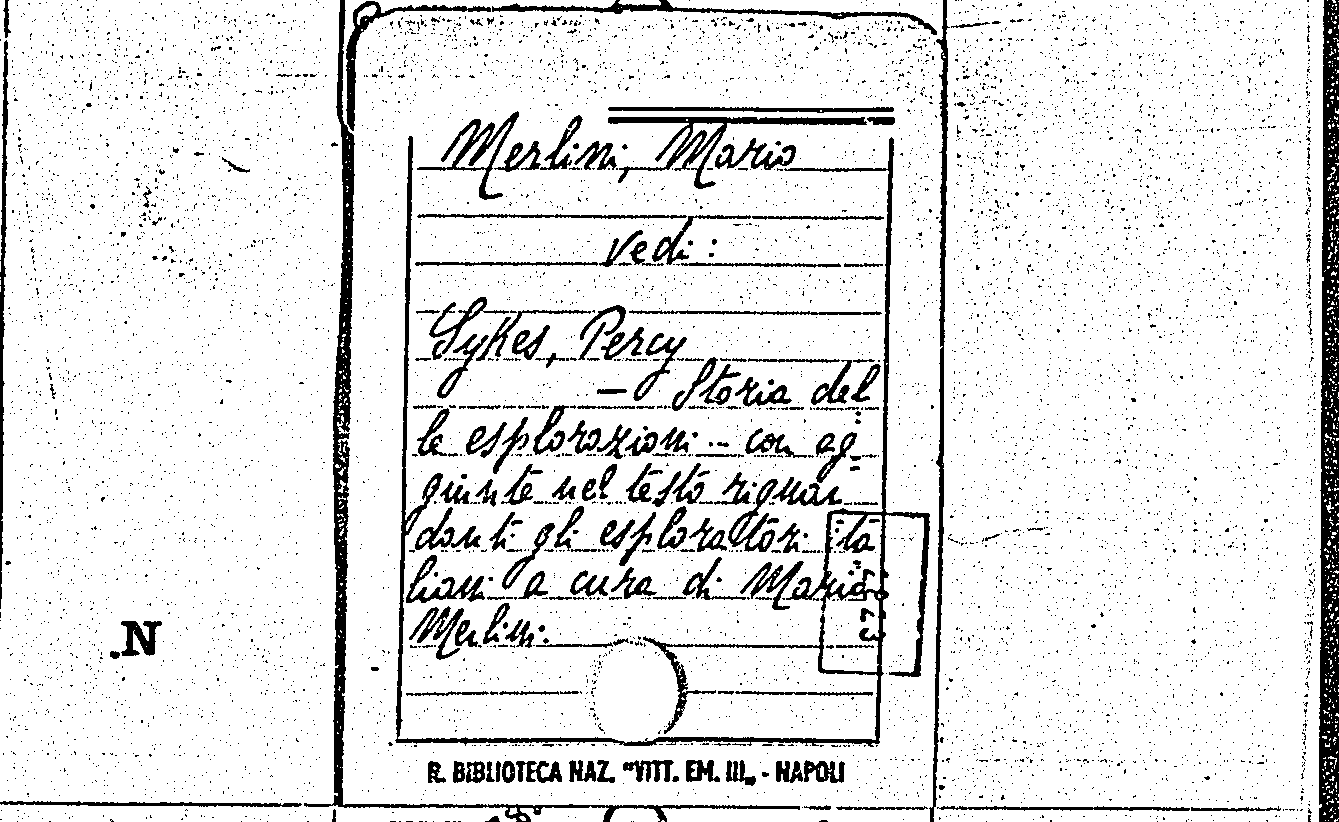 Merlini, Mario
vedi:
Sykes, Percy
- Storia del
le esplorazioni - con ag-
giunte nel testo riguar
danti gli esploratori ita
liani a cura di Mario
Merlini.
.N
R. BIBLIOTECA NAZ. "VITT. EM. III„ - NAPOLI